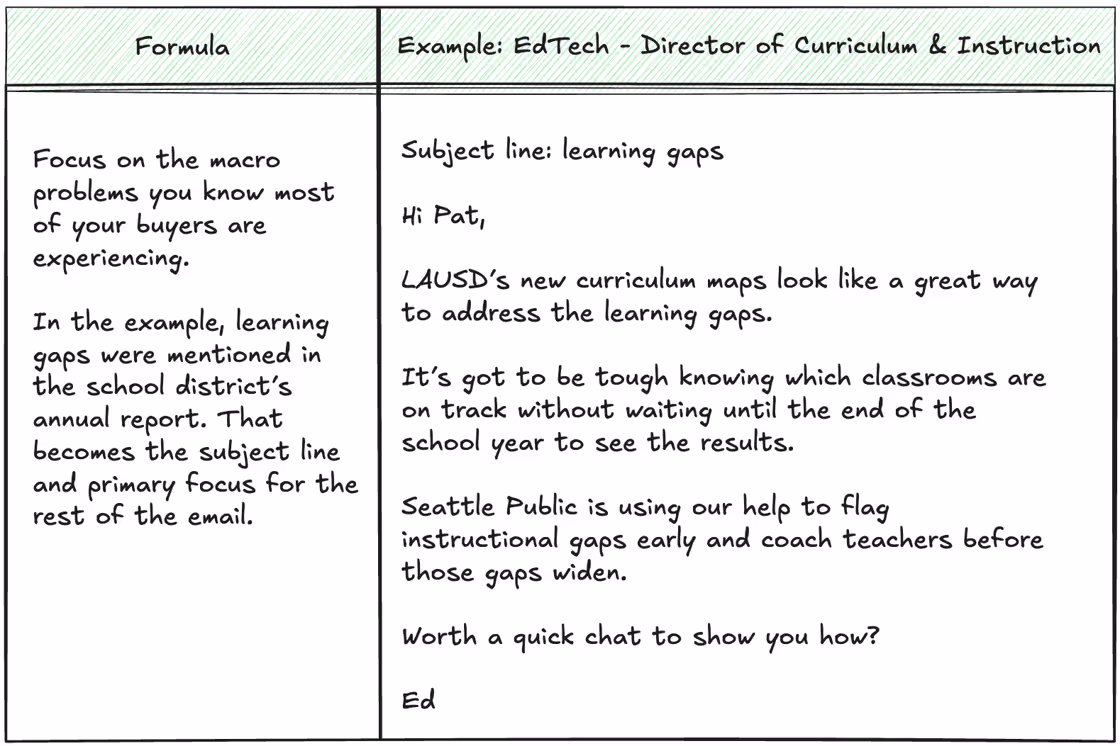 Formula
Example: EdTech - Director of Curriculum & Instruction
Focus on the macro
problems you know most
of your buyers are
experiencing.
In the example, learning
gaps were mentioned in
the school district's
annual report. That
becomes the subject line
and primary focus for the
rest of the email.
Subject line: learning gaps
Hi Pat,
LAUSD's new curriculum maps look like a great way
to address the learning gaps.
It's got to be tough knowing which classrooms are
on track without waiting until the end of the
school year to see the results.
Seattle Public is using our help to flag
instructional gaps early and coach teachers before
those gaps widen.
Worth a quick chat to show you how?
Ed